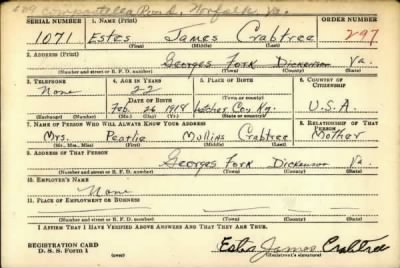 Norfolk Va.
SERIAL NUMBER 1. NAME (Print) ORDER NUMBER
1071 Estes James Crabtree 297
(First) (Middle) (Last)
2. ADDRESS (Print)
Georges Fork Dickenson Va.
(Number and street or R. F. D. number) (Town) (County) (State)
3. TELEPHONE 4. AGE IN YEARS 5. PLACE OF BIRTH 6. COUNTRY OF CITIZENSHIP
None 22
DATE OF BIRTH
Feb 26 1918 Letcher Coy Ky. U.S.A.
(Exchange) (Number) (Mo.) (Day) (Yr.) (State or country)
7. NAME OF PERSON WHO WILL ALWAYS KNOW YOUR ADDRESS 8. RELATIONSHIP OF THAT PERSON
Mrs. Pearlie Mullins Crabtree Mother
(Mr., Mrs., Miss) (First) (Middle) (Last)
9. ADDRESS OF THAT PERSON
Georges Fork Dickenson Va.
(Number and street or R. F. D. number) (Town) (County) (State)
10. EMPLOYER'S NAME
None
11. PLACE OF EMPLOYMENT OR BUSINESS
(Number and street or R. F. D. number) (Town) (County) (State)
I AFFIRM THAT I HAVE VERIFIED ABOVE ANSWERS AND THAT THEY ARE TRUE.
REGISTRATION CARD
D. S. S. Form 1 (over) Estes James Crabtree
(Registrant's signature)